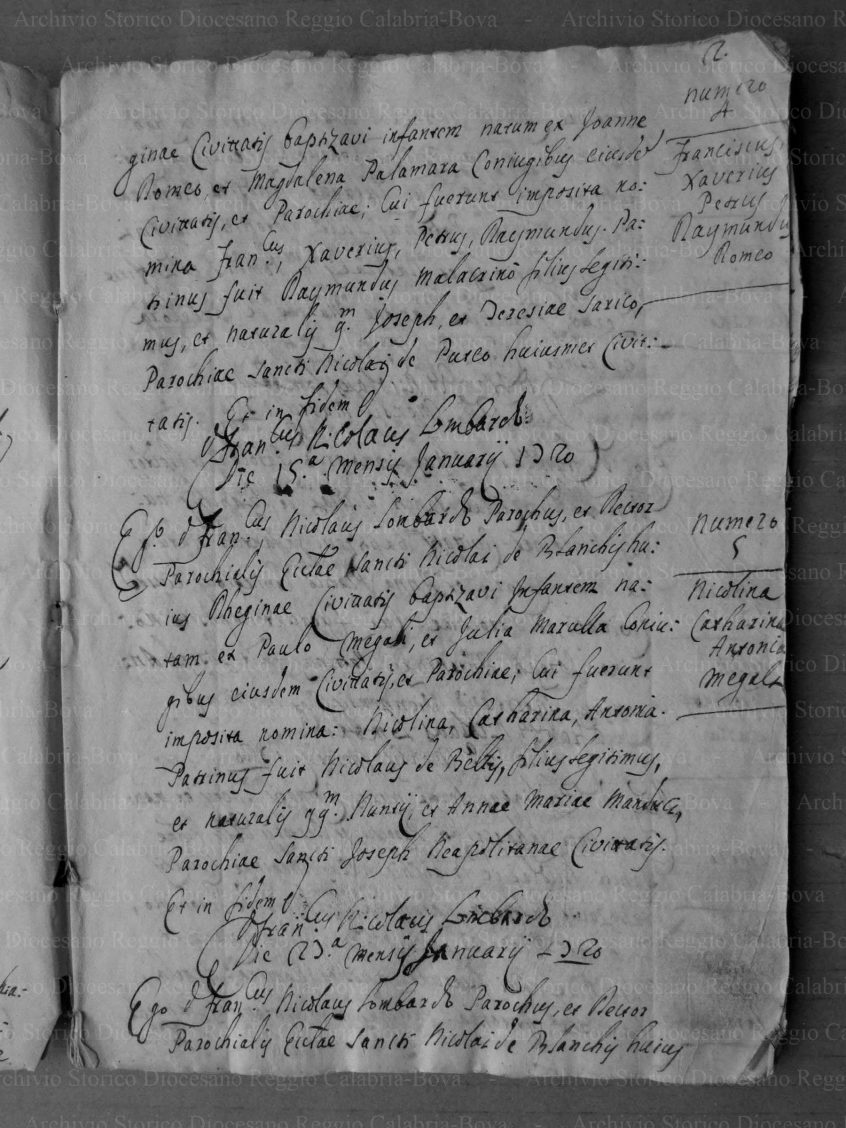 2.
numero
4
Franciscus
Xaverius
Petrus
Raymundus
Romeo
ginae Civittatis baptizavi infantem natum ex Joanne
Romeo, et Magdalena Palamara Coniugibus eiusdem
Civittatis, et Parochiae; Cui fuerunt imposita no:
mina Fran.cus, Xaverius, Petrus, Raymundus. Pa:
trinus fuit Raymundus Malacrinò filius legiti:
mus, et naturalis q.m Joseph, et Teresiae Sarico,
Parochiae Sancti Nicolai de Puteo huiusmet Civit:
tatis. Et in fidem
D. Fran.cus Nicolaus Lombardo
Die 15.a mensis Januarij 1720
Ego D. Fran.cus Nicolaus Lombardo Parochus, et Rector
Parochialis Ecclae Sancti Nicolai de Blanchis hu:
ius Rheginae Civittatis baptizavi Infantem na:
tam ex Paulo Megali, et Julia Marulla Coniu:
gibus eiusdem Civittatis, et Parochiae; Cui fuerunt
imposita nomina: Nicolina, Catharina, Antonia.
Patrinus fuit Nicolaus de Bellis, filius legitimus,
et naturalis qq.m Nuntij, et Annae Mariae
Parochiae Sancti Joseph Neapolitanae Civittatis.
Et in fidem
D. Fran.cus Nicolaus Lombardo
numero
5
Nicolina
Catharina
Antonia
Megali
Die 23.a mensis Januarij 1720
Ego D. Fran.cus Nicolaus Lombardo Parochus, et Rector
Parochialis Ecclae Sancti Nicolai de Blanchis huius
Archivio Storico Diocesano Reggio Calabria-Bova